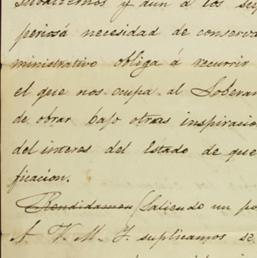 subalternos y aun á los sup
periosa necesidad de conserva
ministrativo obliga á recurrir
el que nos ocupa al Soberan
de obrar bajo otras inspiracio
del interes del Estado de que
ficacion.
Rendidamen (Saliendo un po
A. V. M. Y. suplicamos se